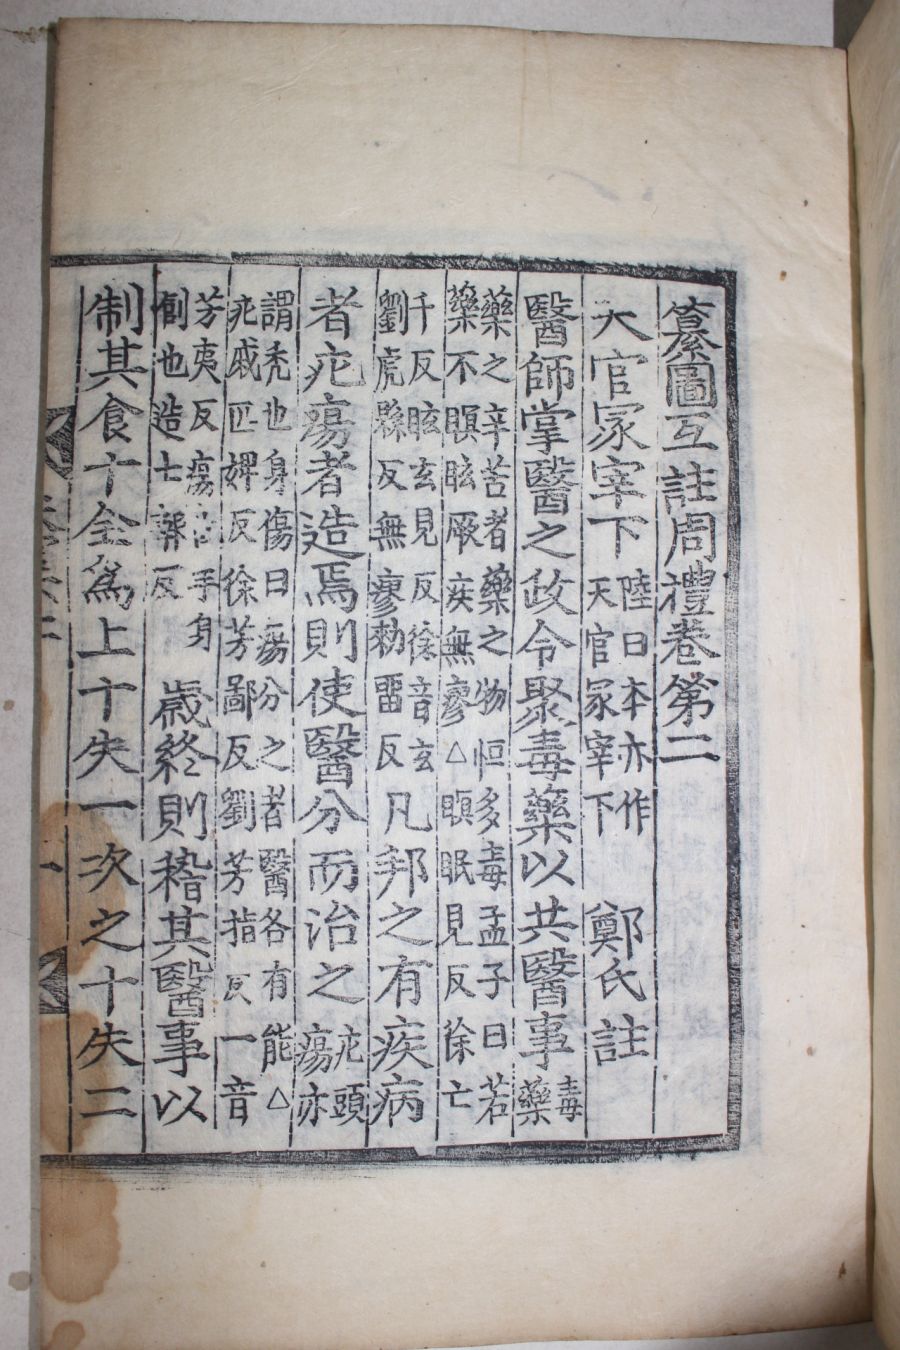 纂圖互註周禮卷第二
天官冢宰下 陸曰本亦作天官冢宰下 鄭氏註
醫師掌醫之政令聚毒藥以共醫事 毒藥
藥之辛苦者藥之物恒多毒孟子曰若
藥不瞑眩厥疾無瘳△瞑眠見反徐亡
千反眩玄見反徐音玄
劉虎縣反無瘳勑留反 凡邦之有疾病
者疕瘍者造焉則使醫分而治之 疕頭瘍亦
謂禿也身傷曰瘍分之者醫各有能△
疕戚匹婢反徐芳鄙反劉芳指反一音
芳夷反瘍 手身
創也造七報反 歲終則稽其醫事以
制其食十全爲上十失一次之十失二